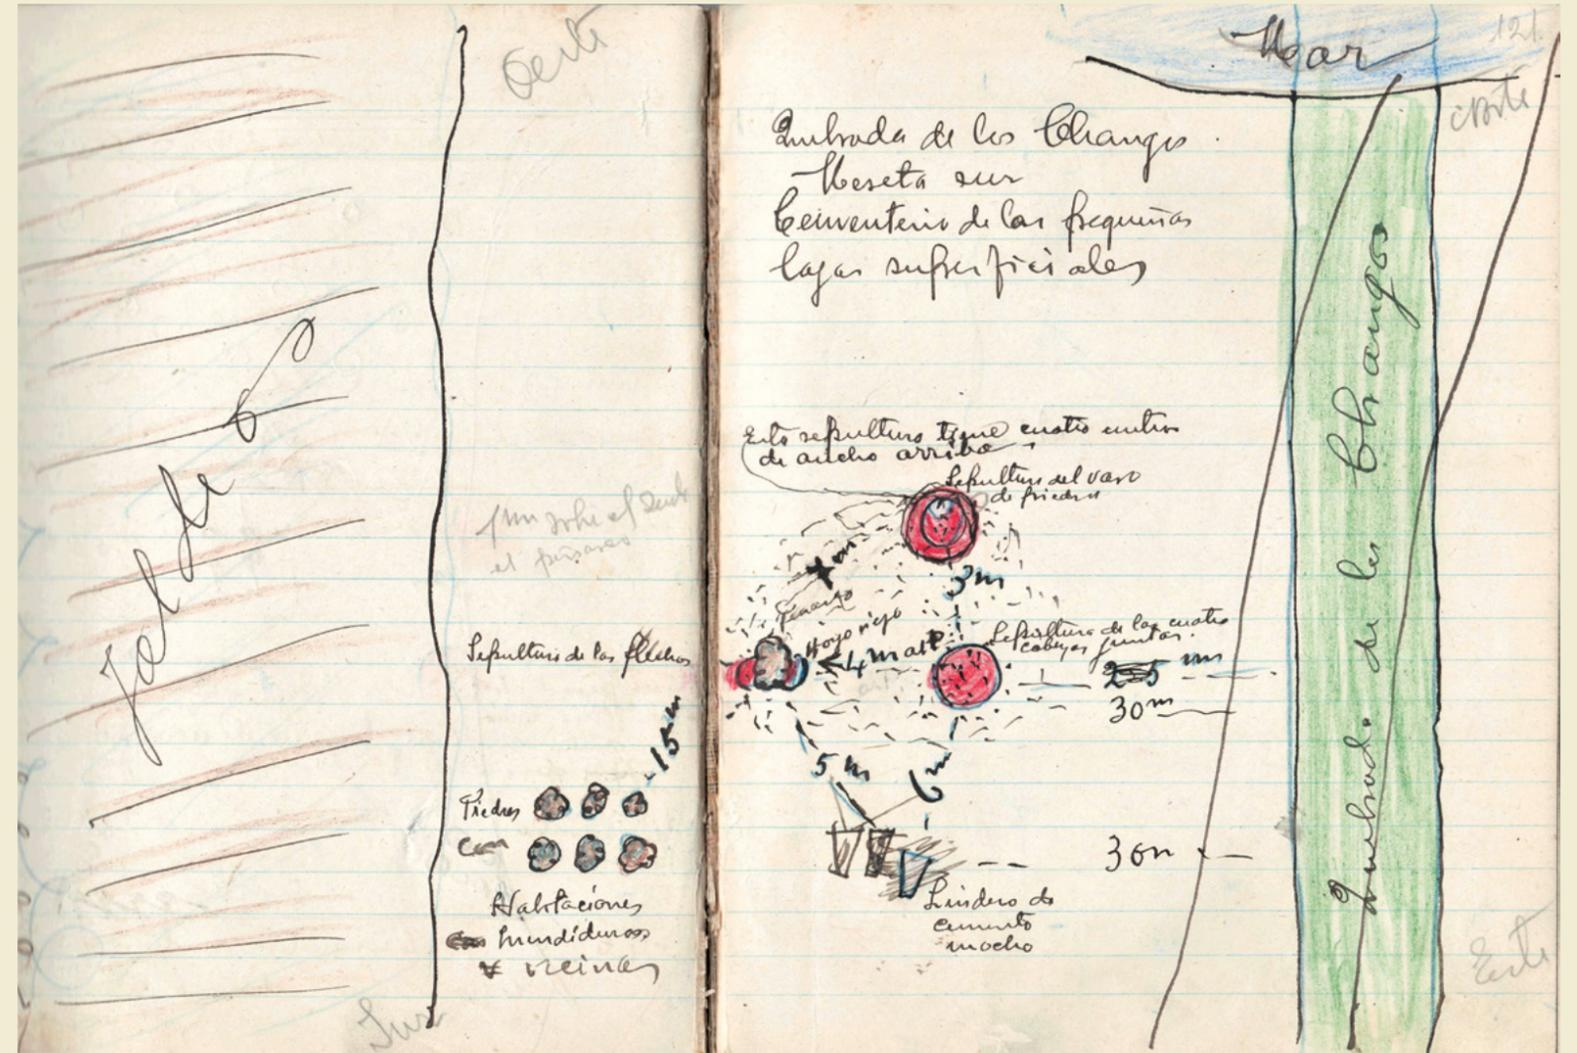 Oeste
Faldeo
Sepultura de las flechas
15 m
Piedras
Casa
Habitaciones
hundiduras
reinas
Sur
Mar
121.
Norte
Quebrada de los Changos.
- Meseta sur
Cementerio de las pequeñas
lajas superficiales
Esta sepultura tiene cuatro metros
de ancho arriba
Sepultura del vaso
de piedra
3m
Hoyo viejo
4 m
Sepultura de las cuatro
cabezas juntas.
30m
5 m
6 m
30m
Lindero de
cemento
mocho
Quebrada de los Changos
Este